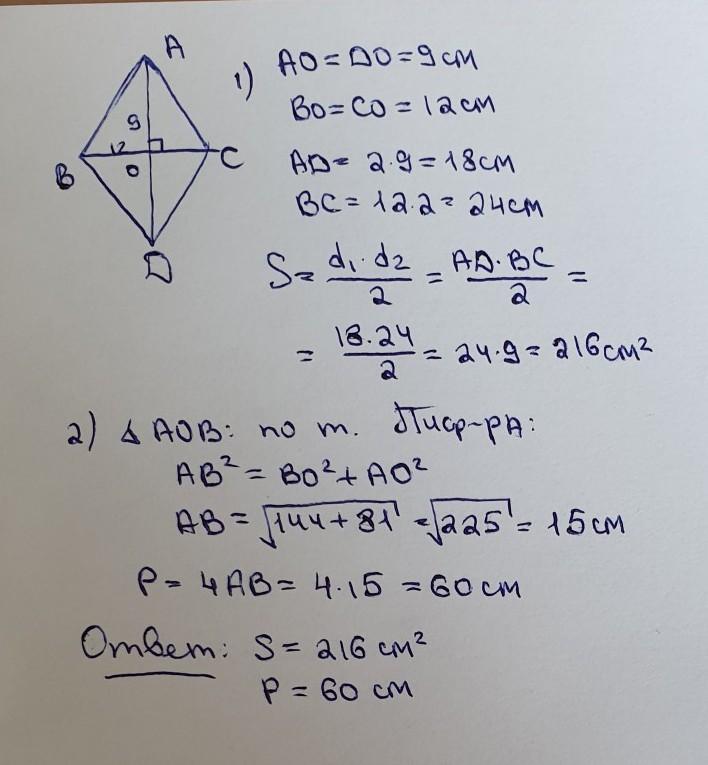 A
9
12
B
O
C
D
1) AO = DO = 9 см
BO = CO = 12 см
AD = 2·9 = 18 см
BC = 12·2 = 24 см
S = d₁·d₂/2 = AD·BC/2 =
= 18·24/2 = 24·9 = 216 см²
2) ∆ AOB: по т. Пиф-ра:
AB² = BO² + AO²
AB = √144 + 81 = √225 = 15 см
P = 4AB = 4·15 = 60 см
Ответ: S = 216 см²
P = 60 см